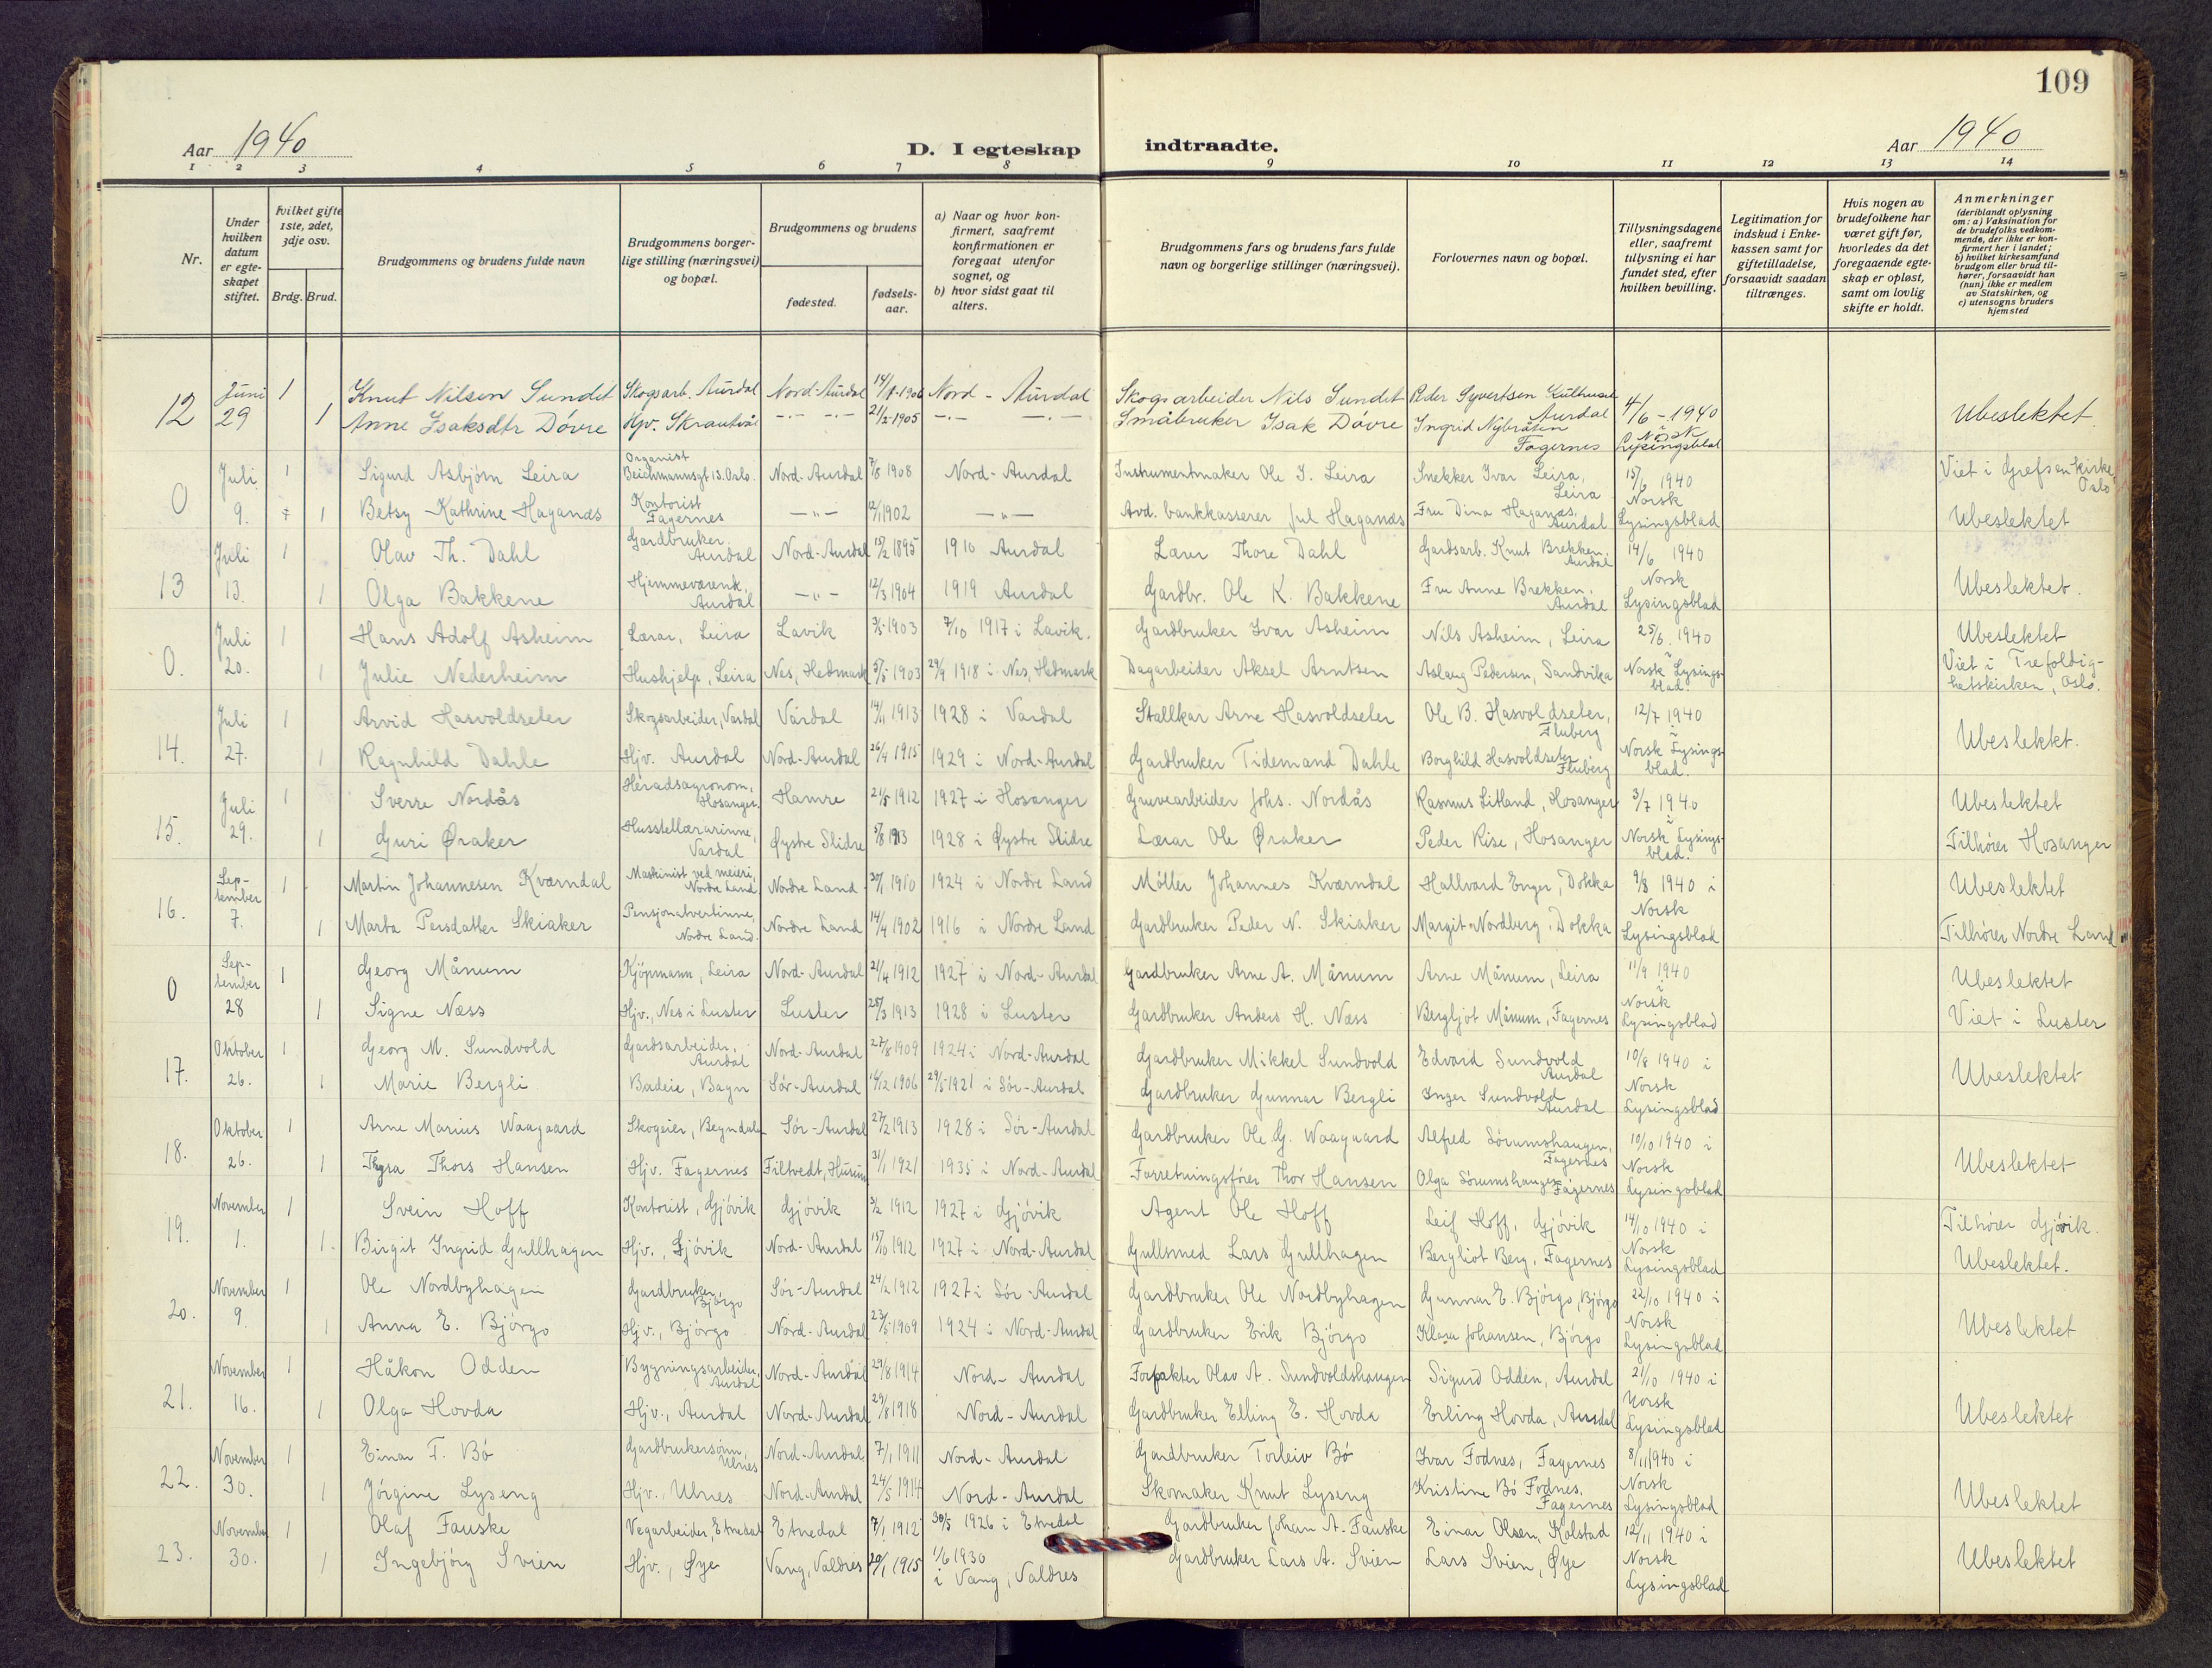 109
Aar 1940
D. I egteskap
indtraadte.
Aar 1940
1 2 3 4 5 6 7 8 9 10 11 12 13 14
Nr.
Under hvilken datum er egteskapet stiftet.
Hvilket gifte 1ste, 2det, 3dje osv.
Brdg. Brud.
Brudgommens og brudens fulde navn
Brudgommens borgerlige stilling (næringsvei) og bopæl.
Brudgommens og brudens
fødested.
fødselsaar.
a) Naar og hvor konfirmert, saafremt konfirmationen er foregaat utenfor sognet, og
b) hvor sidst gaat til alters.
Brudgommens fars og brudens fars fulde navn og borgerlige stillinger (næringsvei).
Forlovernes navn og bopæl.
Tillysningsdagene eller, saafremt tillysning ei har fundet sted, efter hvilken bevilling.
Legitimation for indskud i Enkekassen samt for giftetilladelse, forsaavidt saadan tiltrænges.
Hvis nogen av brudefolkene har været gift før, hvorledes da det foregaaende egteskap er opløst, samt om lovlig skifte er holdt.
Anmerkninger
(deriblandt oplysning om: a) Vaksination for de brudefolks vedkommende, der ikke er konfirmert her i landet; b) hvilket kirkesamfund brudgom eller brud tilhører, forsaavidt han (hun) ikke er medlem av Statskirken, og c) utensogns bruders hjemsted
12 Juni 29 1 Knut Nilsen Sundet Skogsarb. Aurdal Nord-Aurdal Nord-Aurdal Skogsarbeider Nils Sundet Peder Syvertsen Aurdal 4/6-1940
1 Anne Isaksdtr Døvre Hjv. Skrautvål 21/2-1905 Småbruker Isak Døvre Ingrid Nybråten Fagernes Norsk Lysingsblad Ubeslektet.
0 Juli 9. 1 Sigurd Asbjørn Leira Organist Beichmannsgt 13. Oslo. Nord-Aurdal 7/8 1908 Nord-Aurdal Instrumentmaker Ole I. Leira Snekker Ivar Leira, Leira 15/6 1940 Viet i Grefsen kirke, Oslo
1 Betsy Kathrine Haganæs Kontorist Fagernes — " — 12/1 1902 — " — Avd. bankkasserer Jul Haganæs Fru Dina Haganæs, Aurdal Norsk Lysingsblad Ubeslektet
13 Juli 13. 1 Olav Th. Dahl Gardbruker Aurdal Nord-Aurdal 15/2 1895 1910 Aurdal Lærer Thore Dahl Gardsarb. Knut Brekken, Aurdal 14/6 1940
1 Olga Bakkene Hjemmeværende, Aurdal — " — 12/3 1904 1919 Aurdal Gardbr. Ole K. Bakkene Fru Anne Brekken, Aurdal Norsk Lysingsblad Ubeslektet.
0. Juli 20. 1 Hans Adolf Asheim Lærar, Leira Lavik 3/5 1903 7/10 1917 i Lavik. Gardbruker Ivar Asheim Nils Asheim, Leira 25/6 1940 Ubeslektet
1 Julie Nederheim Hushjelp, Leira Nes, Hedmark 5/5 1903 29/9 1918 i Nes, Hedmark Dagarbeider Aksel Arntsen Aslaug Pedersen, Sandvika i Norsk Lysingsblad. Viet i Trefoldighetskirken, Oslo.
14. Juli 27. 1 Arvid Hasvoldseter Skogsarbeider, Vardal Vardal 14/11 1913 1928 i Vardal Stallkar Arne Hasvoldseter Ole B. Hasvoldseter, Fluberg 12/7 1940
1 Ragnhild Dahle Hjv. Aurdal Nord-Aurdal 26/4 1915 1929 i Nord-Aurdal Gardbruker Tidemand Dahle Borghild Hasvoldseter Fluberg i Norsk Lysingsblad. Ubeslekkt.
15. Juli 29. 1 Sverre Nordås Heradsagronom, Hosanger. Hamre 21/5 1912 1927 i Hosanger Gruvearbeider Johs. Nordås Rasmus Litland, Hosanger 3/7 1940 Ubeslektet
1 Guri Øraker Husstellærarinne, Vardal Øystre Slidre 5/8 1913 1928 i Øystre Slidre Lærar Ole Øraker Peder Rise, Hosanger i Norsk Lysingsblad. Tilhører Hosanger
16. September 7. 1 Martin Johannesen Kværndal Maskinist ved meieri, Nordre Land Nordre Land 30/1 1910 1924 i Nordre Land Møller Johannes Kværndal Hallvard Enger, Dokka 9/8 1940 i Ubeslektet
1 Marta Persdatter Skiaker Pensjonatvertinne, Nordre Land. Nordre Land 14/4 1902 1916 i Nordre Land Gardbruker Peder N. Skiaker Margit Nordberg, Dokka Norsk Lysingsblad Tilhører Nordre Land
0 September 28 1 Georg Månum Kjøpmann, Leira Nord-Aurdal 21/4 1912 1927 i Nord-Aurdal Gardbruker Arne A. Månum Arne Månum, Leira 11/9 1940 Ubeslektet
1 Signe Næss Hjv., Nes i Luster Luster 25/3 1913 1928 i Luster Gardbruker Anders H. Næss Bergljot Månum, Fagernes i Norsk Lysingsblad Viet i Luster
17. Oktober 26. 1 Georg M. Sundvold Gardsarbeider, Aurdal Nord-Aurdal 27/8 1909 1924 i Nord-Aurdal Gardbruker Mikkel Sundvold Edvard Sundvold Aurdal 10/8 1940 i
1 Marie Bergli Budeie, Bagn Sør-Aurdal 14/12 1906 29/5 1921 i Sør-Aurdal Gardbruker Gunnar Bergli Inger Sundvold Aurdal Norsk Lysingsblad Ubeslektet
18. Oktober 26. 1 Arne Marius Waagaard Skogeier, Begndalen Sør-Aurdal 27/2 1913 1928 i Sør-Aurdal Gardbruker Ole G. Waagaard Alfred Sørumshaugen, Fagernes 10/10 1940 i
1 Thyra Thors Hansen Hjv. Fagernes Filtvedt, Hurum 31/1 1921 1935 i Nord-Aurdal Forretningsfører Thor Hansen Olga Sørumshaugen Fagernes Norsk Lysingsblad Ubeslektet
19. November 1. 1 Svein Hoff Kontorist, Gjøvik Gjøvik 3/2 1912 1927 i Gjøvik Agent Ole Hoff Leif Hoff, Gjøvik 14/10 1940 i Tilhører Gjøvik.
1. Birgit Ingrid Gullhagen Hjv., Gjøvik Nord-Aurdal 15/10 1912 1927 i Nord-Aurdal Gullsmed Lars Gullhagen Bergliot Berg, Fagernes Norsk Lysingsblad Ubeslektet.
20. November 9. 1 Ole Nordbyhagen Gardbruker Bjørgo Sør-Aurdal 24/2 1912 1927 i Sør-Aurdal Gardbruker Ole Nordbyhagen Gunnar E. Bjørgo, Bjørgo 22/10 1940 i
1 Anna E. Bjørgo Hjv., Bjørgo Nord-Aurdal 23/5 1909 1924 i Nord-Aurdal Gardbruker Erik Bjørgo Klara Johansen, Bjørgo Norsk Lysingsblad Ubeslektet
21. November 16. 1 Håkon Odden Bygningsarbeider, Aurdal Nord-Aurdal 29/8 1914 Nord-Aurdal Forpakter Olav A. Sundvoldshaugen Sigurd Odden, Aurdal 21/10 1940 i
1 Olga Hovda Hjv., Aurdal Nord-Aurdal 29/8 1918 Nord-Aurdal Gardbruker Elling E. Hovda Erling Hovda, Aurdal Norsk Lysingsblad Ubeslektet
22. November 30. 1 Einar F. Bø Gardbrukersønn, Ulnes Nord-Aurdal 7/1 1911 Nord-Aurdal Gardbruker Torleiv Bø Ivar Fodnes, Fagernes 8/11 1940 i
1 Jørgine Lyseng Hjv., Ulnes Nord-Aurdal 24/5 1914 Nord-Aurdal Skomaker Knut Lyseng Kristine Bø Fodnes, Fagernes Norsk Lysingsblad Ubeslektet
23. November 30. 1 Olaf Fauske Vegarbeider, Etnedal Etnedal 7/1 1912 30/5 1926 i Etnedal Gardbruker Johan A. Fauske Einar Olsen, Kolstad 12/11 1940 i
1 Ingebjørg Svien Hjv., Øye Vang, Valdres 20/1 1915 1/6 1930 i Vang, Valdres Gardbruker Lars A. Svien Lars Svien, Øye Norsk Lysingsblad Ubeslektet